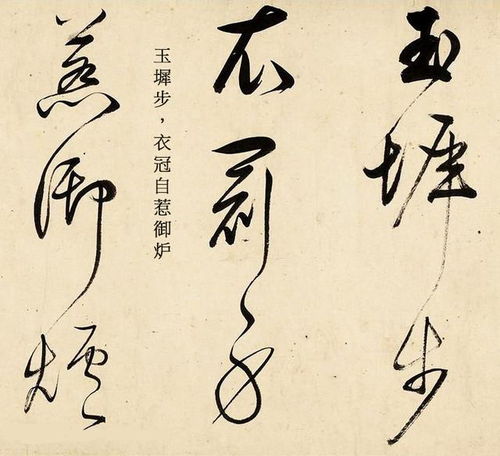 玉墀步
衣冠自
惹御爐
玉墀步，衣冠自惹御炉